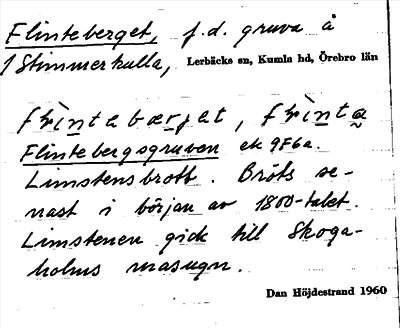 Flinteberget, f.d. gruva å
1 Stimmerkulla, Lerbäcks sn, Kumla hd, Örebro län
Flintebergsgruven ek 9F6a.
Limstensbrott. Bröts se-
nast i början av 1800-talet.
Limstenen gick till Skoga-
holms masugn.
Dan Höjdestrand 1960